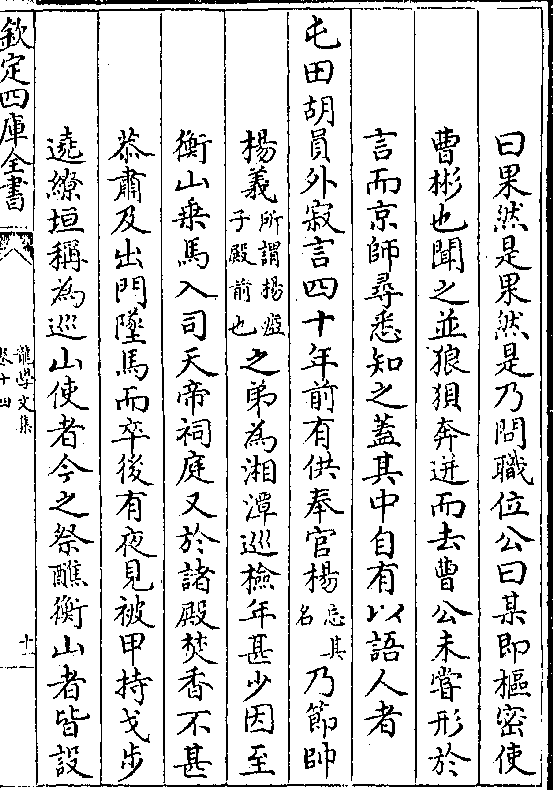 曰果然是果然是乃問職位公曰某即樞密使
曹彬也聞之並狼狽奔迸而去曹公未嘗形於
言而京師尋悉知之蓋其中自有以語人者
屯田胡員外寂言四十年前有供奉官楊忘其名乃節帥
楊義所謂楊瘂子殿前也之弟為湘潭巡檢年甚少因至
衡山乗馬入司天帝祠庭又於諸殿焚香不甚
恭肅及出門墜馬而卒後有夜見被甲持戈步
遶繚垣稱為巡山使者今之祭醮衡山者皆設
欽定四庫全書
龍學文集
卷十四
十一